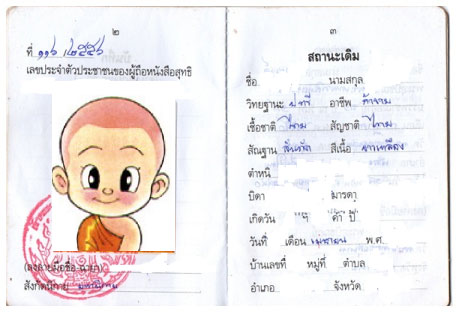 ๒
ที่ ๑๑๖ /๒๕๕๖
เลขประจำตัวประชาชนของผู้ถือหนังสือสุทธิ
(ลงลายมือชื่อ ฉายา)
สังกัดนิกาย มหานิกาย
๓
สถานะเดิม
ชื่อ นามสกุล
วิทยฐานะ ป.ตรี อาชีพ ค้าขาย
เชื้อชาติ ไทย สัญชาติ ไทย
สัณฐาน สันทัด สีเนื้อ ขาวเหลือง
ตำหนิ
บิดา มารดา
เกิดวัน ปี
วันที่ เดือน เมษายน พ.ศ.
บ้านเลขที่ หมู่ที่ ตำบล
อำเภอ จังหวัด